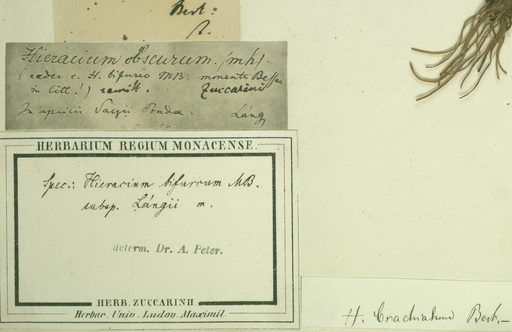 Bert:
Hieracium obscurum. (mh)
(cedit c. H. bifurco MB. monente Besser
in litt.!) Zuccarini
In apricis Budae. Láng
HERBARIUM REGIUM MONACENSE.
Spec.: Hieracium bifurcum MB.
subsp. Lángii m.
determ. Dr. A. Peter.
HERB. ZUCCARINII
Herbar. Univ. Ludov. Maximil.
H. brachiatum Bert.–